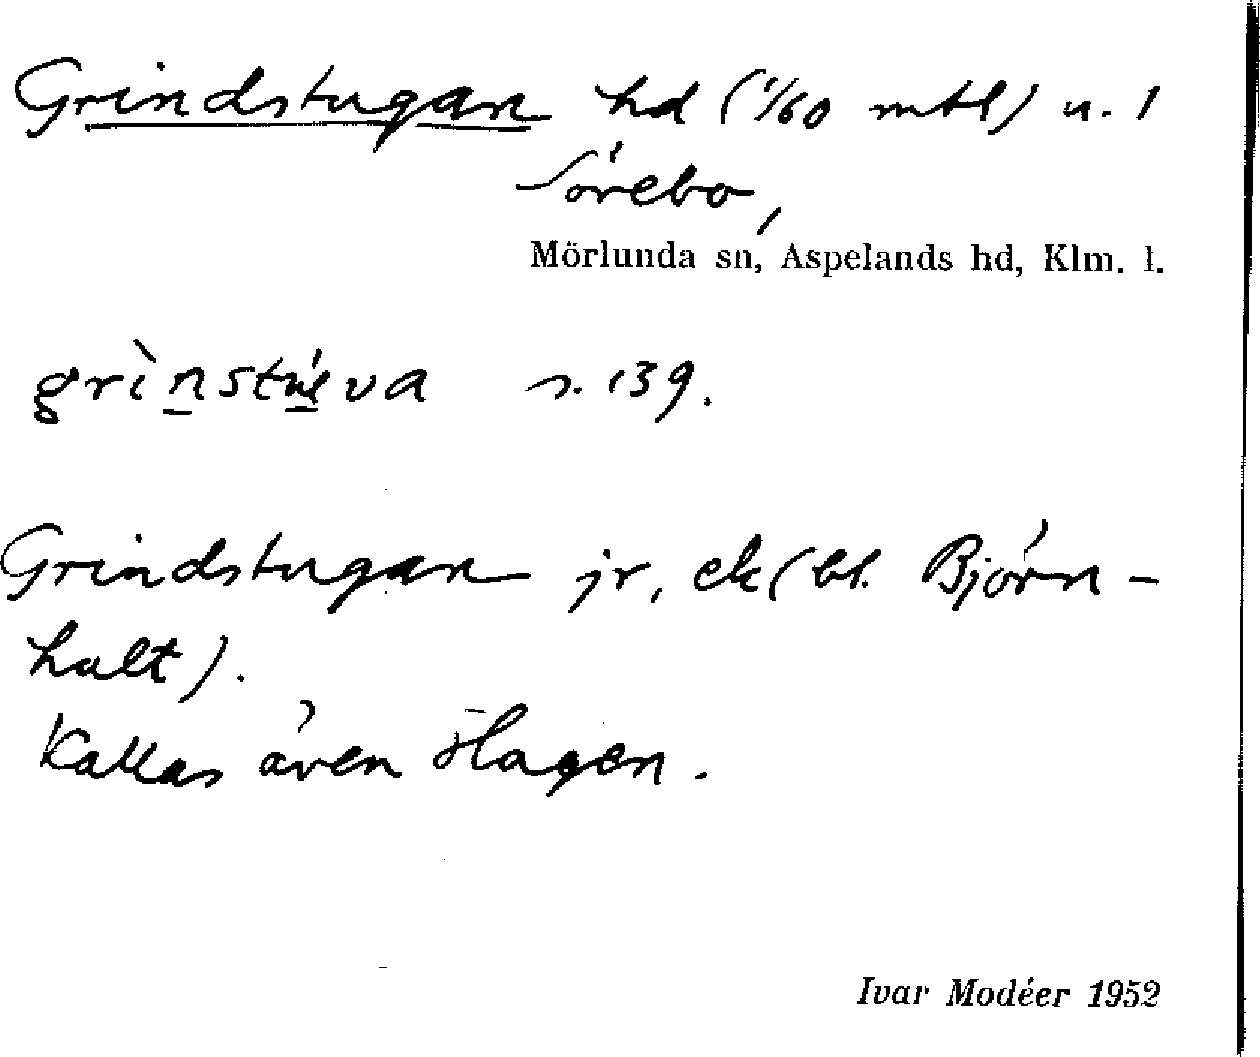 Grindstugan hd (1/60 mtl) u. 1
Sörebo,
Mörlunda sn, Aspelands hd, Klm. l.
s. 139.
Grindstugan jr, ek (bl. Björn-
hult).
Kallas även Hagen.
Ivar Modéer 1952